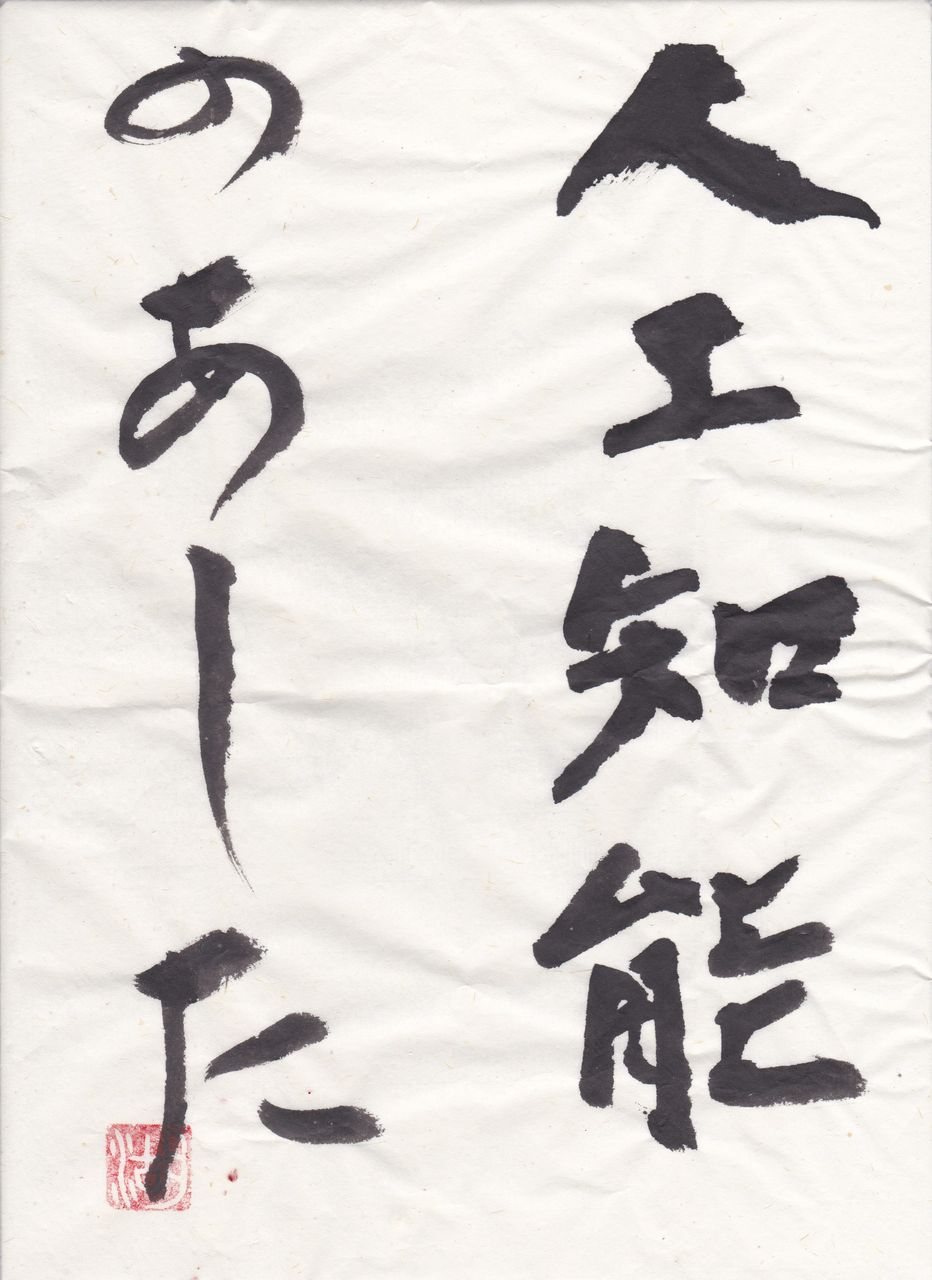 人工知能
のあした